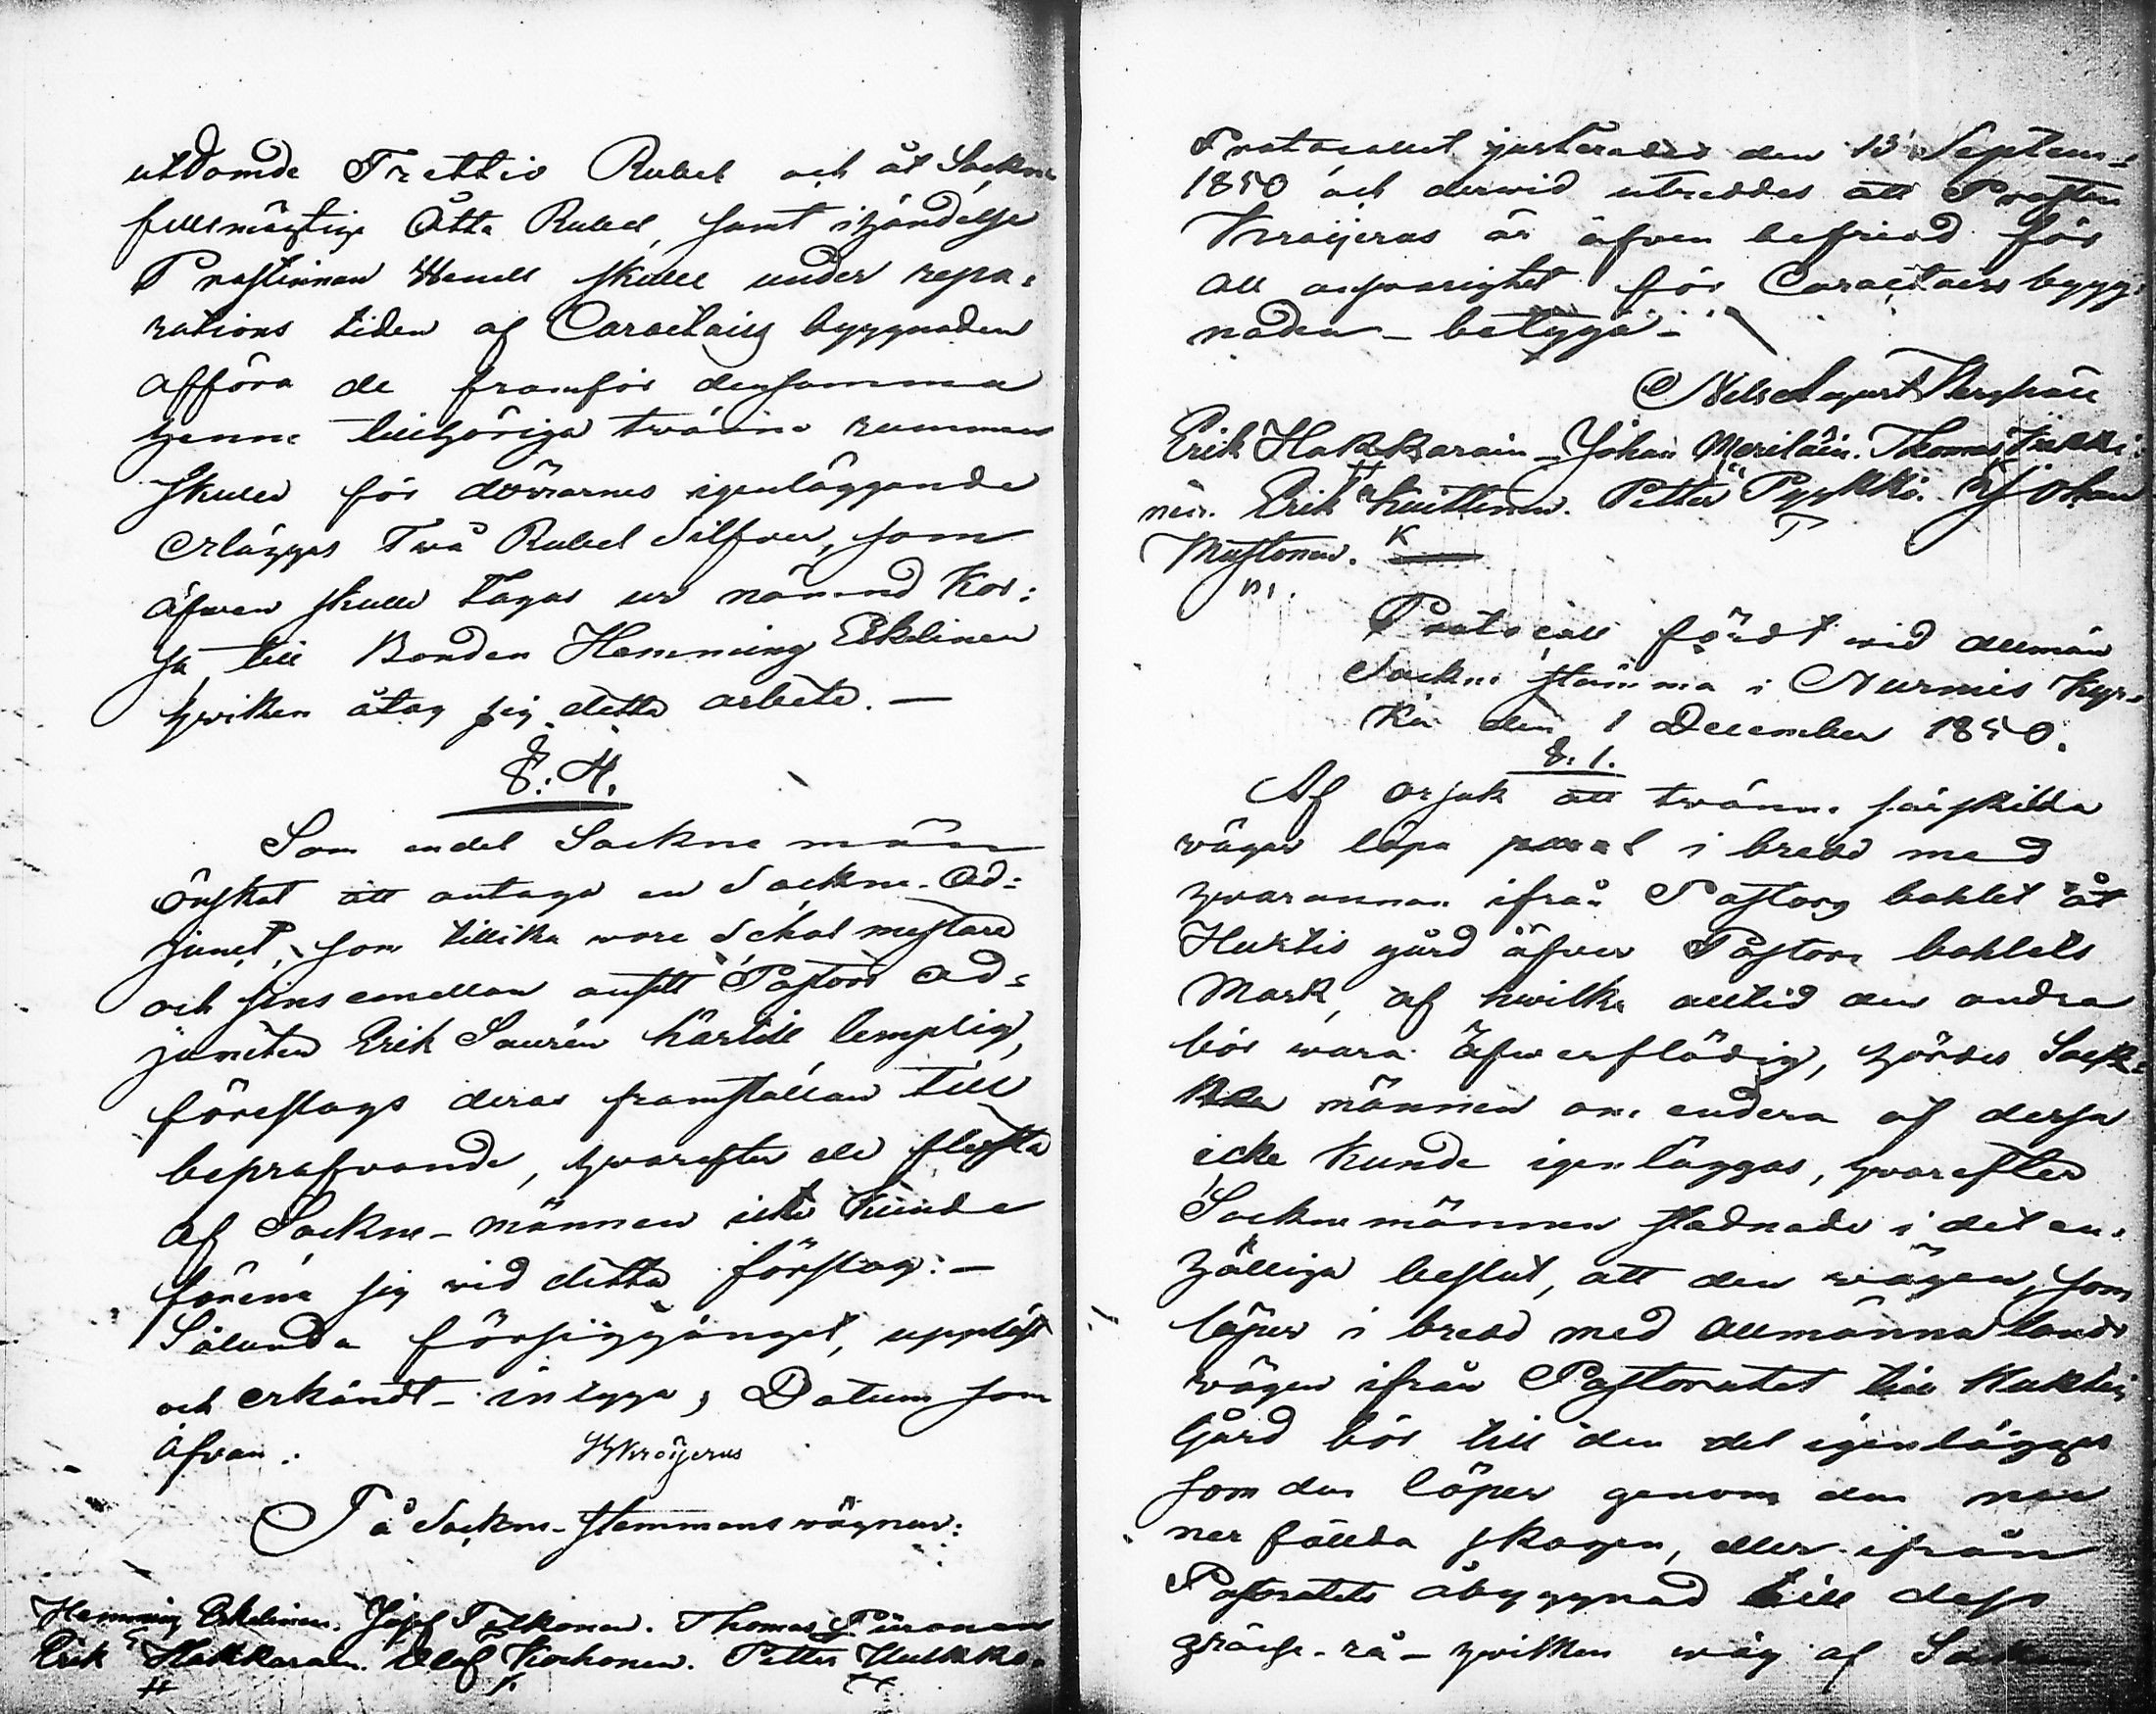 utdömde Trettio Rubel och åt Sockne
fullmägtige Åtta Rubel, samt ihändelse
Prostinnan Wenell skulle under repa:
rations tiden af Caractairs byggnaden
afföra de framför densamma
henne tillhöriga tvänne rummen
skulle för dörrarnes igenläggande
erläggas Två Rubel Silfver, som
äfven skulle tagas ur nämnd Kas:
sa till Bonden Hemming Eskelinen
hvilken åtog sig detta arbete. —
§: 4.
Som endel Sockne män
önskat att antaga en Sockne-Ad:
junct, som tillika vore Schol mestare
och sins emellan ansett Pastors Ad:
juncten Erik Saurén härtill lemplig,
föreslogs deras framställan till
beprøfvande, hvarefter de flesta
af Sockne-männen icke kunde
förena sig vid detta förslag: —
Sålunda försiggånget, uppläst
och erkändt - intyga; Datum som
ofvan.
H Kroijerus
På Sockne-stemmans vägnar:
Hemming Eskelinen. Josef Tolkonen. Thomas Piironen
Erik Hakkarain. Olof Korhonen. Petter Hulkko.
Protocollet justerades den 13 Septem-
1850 och dervid utreddes att Prosten
Kroijerus är äfven befriad för
all ansvarighet för Caractairs bygg
naden - betyga -
Nils August Berghäll
Erik Hakkarain - Johan Meriläin. Thomas Jukki
nen. Erik Kuittinen. Petter Pyykkö. Johan
Mustonen. K
m.
Protocoll fördt vid allmän
Sockne stämma i Nurmis Kyr-
ka den 1 December 1850.
§. 1.
Af orsak att tvänne särskilda
vägar löpa i bredd med
hvarannan ifrån Pastors bohlet åt
Hurtis gård öfver Pastors bohlets
Mark, af hvilka alltid den andra
bör vara öfverflödig, hördes Sock-
ne männen om endera af dessa
icke kunde igenläggas, hvarefter
Sockne männen stadnade i det en-
hälliga beslut, att den vägen, som
löper i bredd med allmänna lands
vägen ifrån Pastoratet till Hurtis
gård bör till den del igenläggas
som den löper genom den
ner fällda skogen, eller ifrån
Pastoratets åbyggnad till dess
gränse-rå - hvilken väg af Sockne